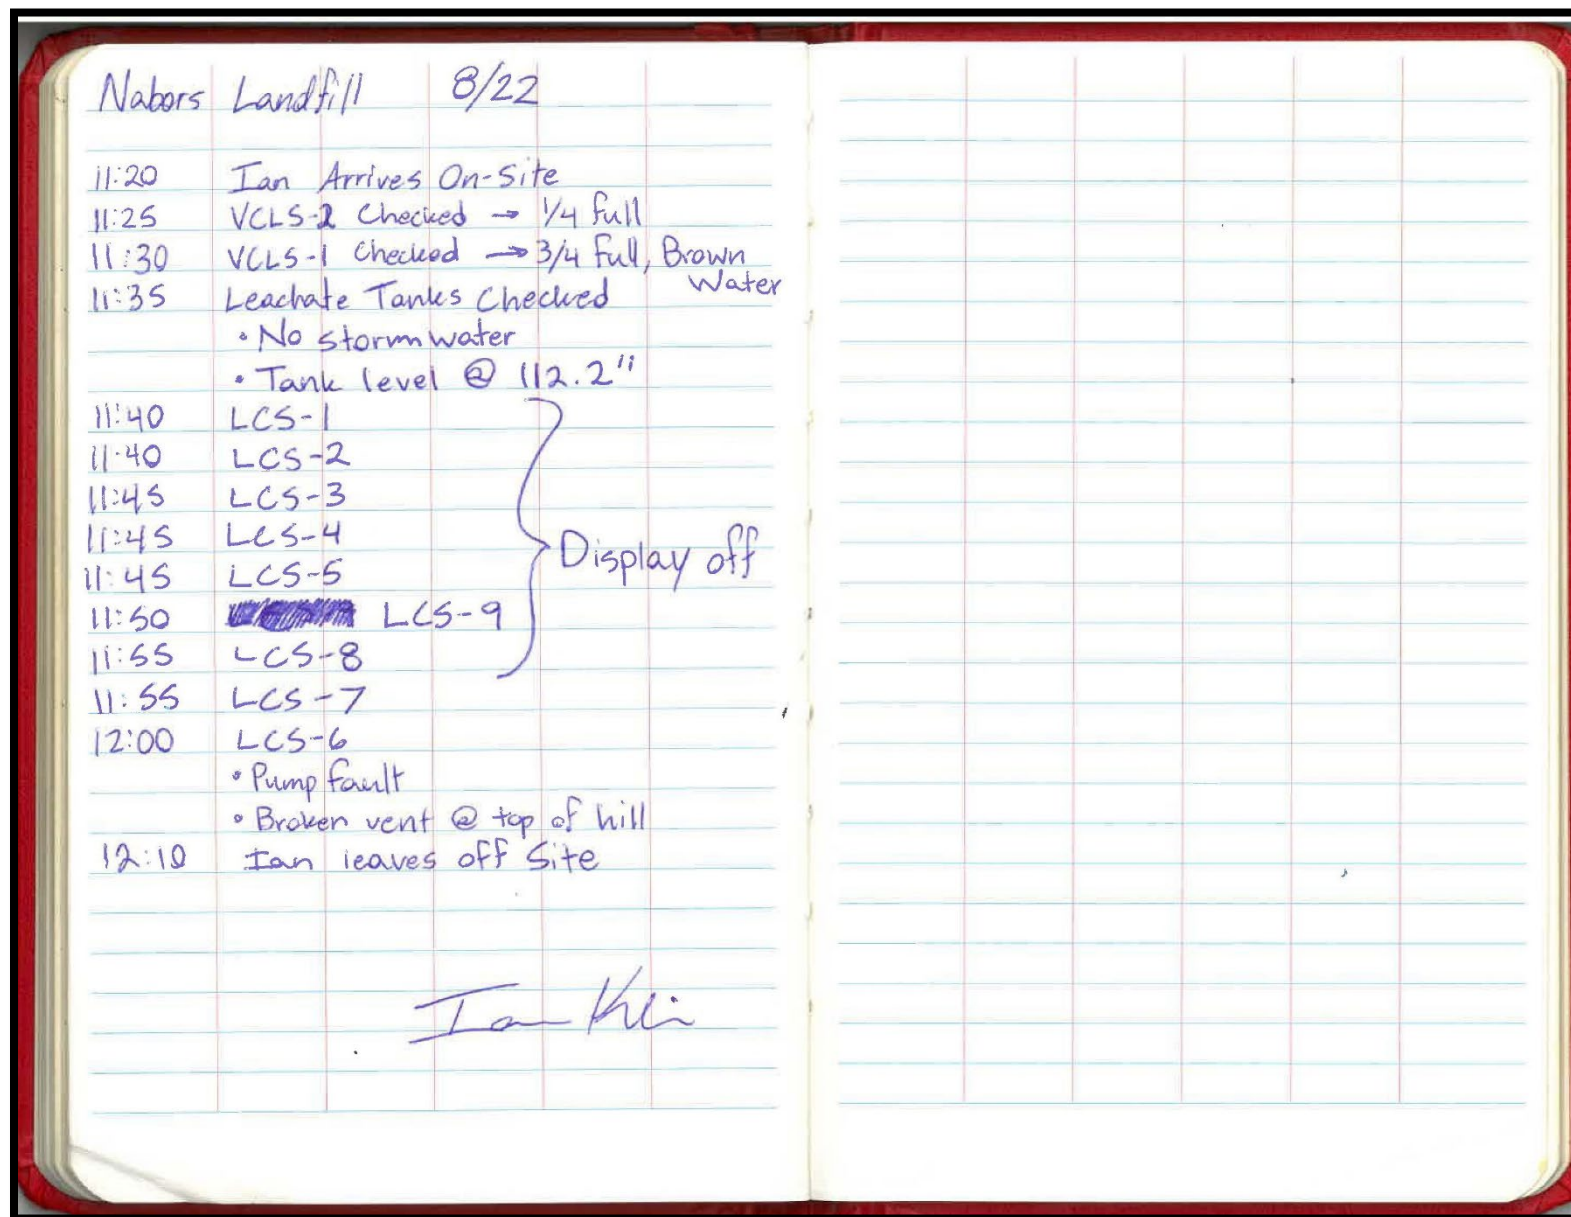 Nabors Landfill 8/22
11:20 Ian Arrives On-Site
11:25 VCLS-2 Checked → 1/4 full
11:30 VCLS-1 Checked → 3/4 full, Brown
Water
11:35 Leachate Tanks Checked
• No storm water
• Tank level @ 112.2"
11:40 LCS-1
11:40 LCS-2
11:45 LCS-3
11:45 LCS-4
11:45 LCS-5
Display off
11:50 LCS-9
11:55 LCS-8
11:55 LCS-7
12:00 LCS-6
• Pump fault
• Broken vent @ top of hill
12:10 Ian leaves off Site
Ian